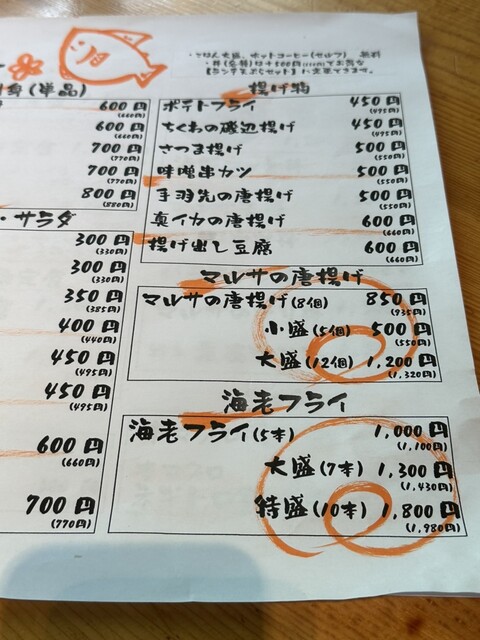 ・ごはん大盛、ホットコーヒー(セルフ) 無料
(単品)
600円
(660)
600円
(660)
700円
(770)
700円
(770)
800円
(880)
・サラダ
300円
(330)
300円
(330)
350円
(385)
400円
(440)
450円
(495)
450円
(495)
600円
(660)
700円
(770)
揚げ物
ポテトフライ 450円
(495)
ちくわの磯辺揚げ 450円
(495)
さつま揚げ 500円
(550)
味噌串カツ 500円
(550)
手羽先の唐揚げ 500円
(550)
真イカの唐揚げ 600円
(660)
揚げ出し豆腐 600円
(660)
マルサの唐揚げ
マルサの唐揚げ(8個) 850円
(935)
小盛(5個) 500円
(550)
大盛(12個) 1,200円
(1,320)
海老フライ
海老フライ(5本) 1,000円
(1,100)
大盛(7本) 1,300円
(1,430)
特盛(10本) 1,800円
(1,980)